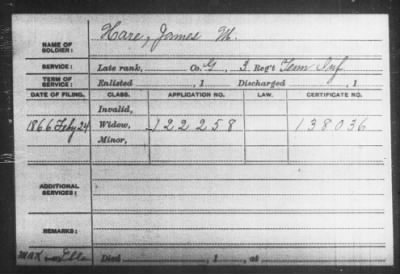 NAME OF SOLDIER: Hare, James M.
SERVICE: Late rank, Co. G, 3 Reg't Tenn Inf
TERM OF SERVICE: Enlisted , 1 Discharged , 1
DATE OF FILING. CLASS. APPLICATION NO. LAW. CERTIFICATE NO.
Invalid,
1866 Feby 24 Widow, 122258 138036
Minor,
ADDITIONAL SERVICES:
REMARKS:
Died , 1 , at